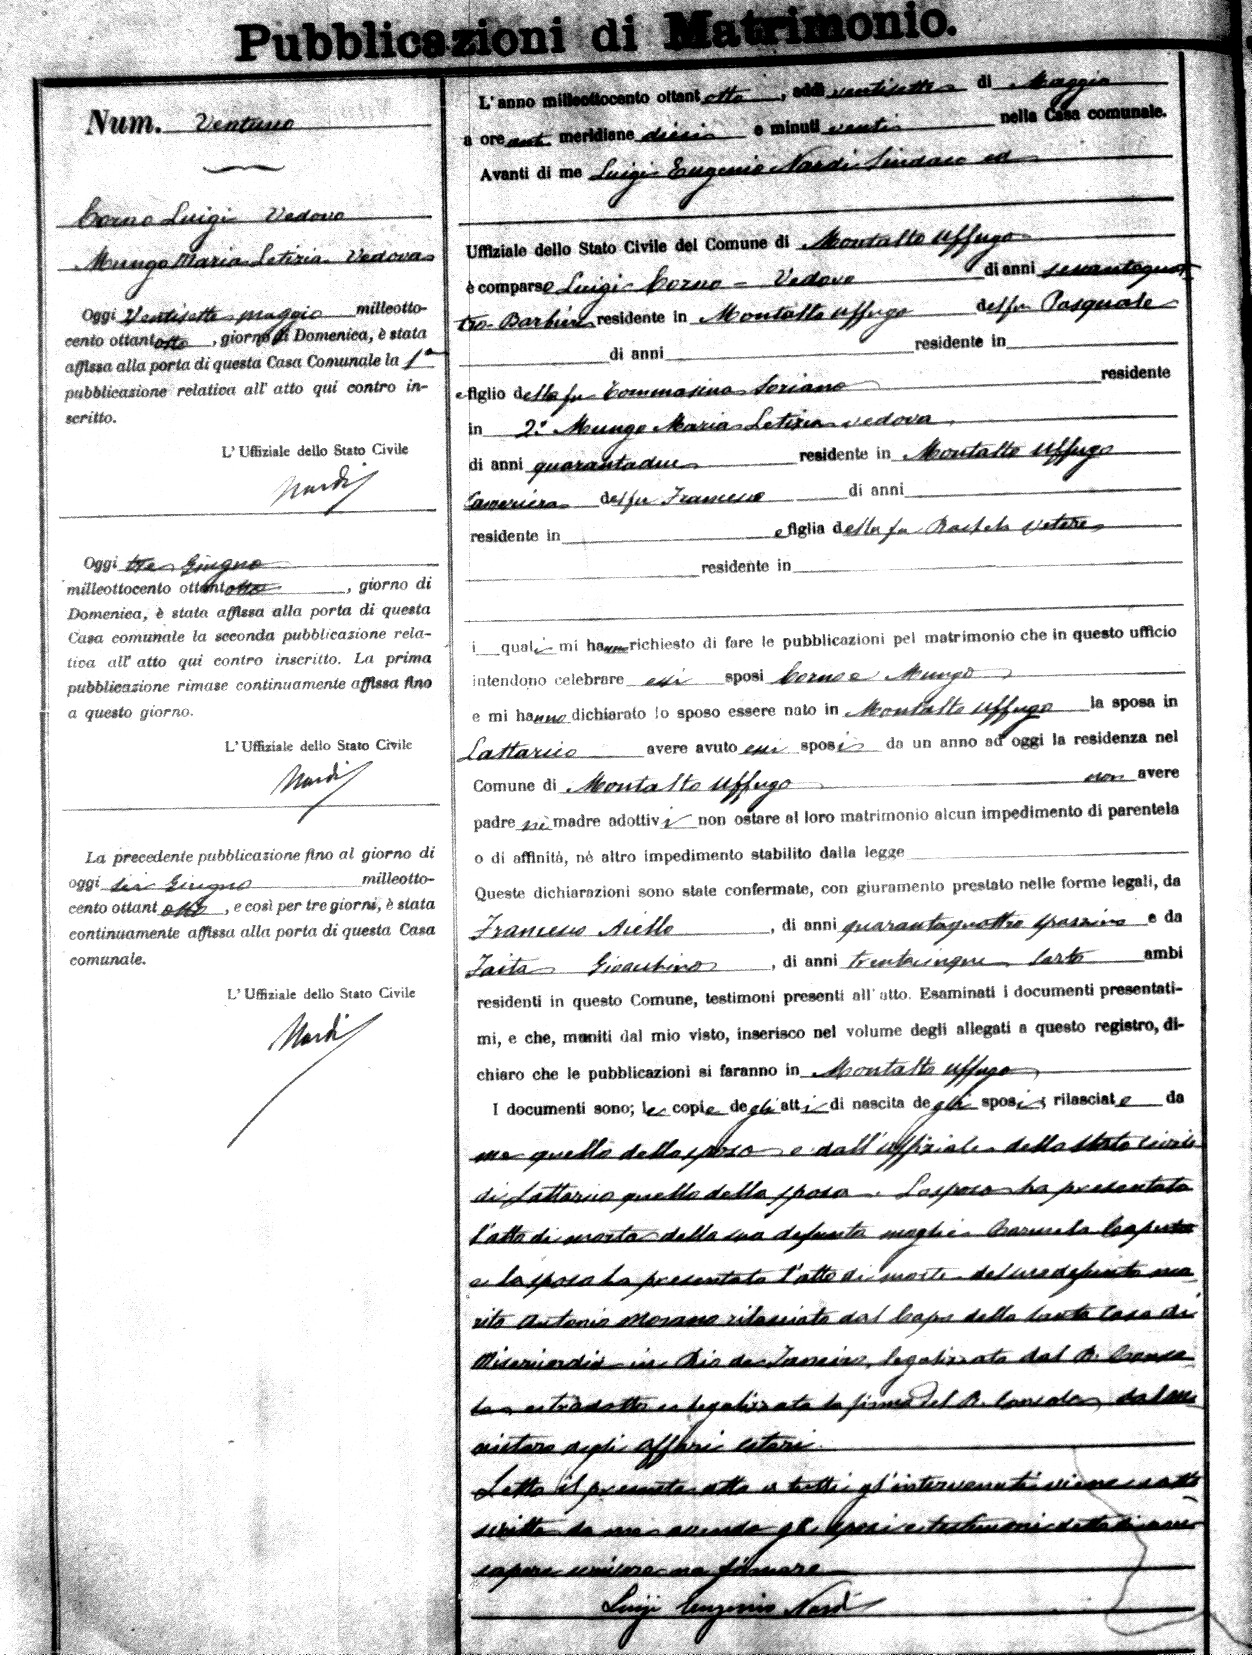 Pubblicazioni di Matrimonio.
Num. Ventuno
Corno Luigi Vedovo
Mungo Maria Letizia Vedova
Oggi Ventisette maggio milleotto-
cento ottantotto, giorno di Domenica, è stata
affissa alla porta di questa Casa Comunale la 1ª
pubblicazione relativa all' atto qui contro in-
scritto.
L' Uffiziale dello Stato Civile
Nardi
Oggi tre Giugno
milleottocento ottantotto, giorno di
Domenica, è stata affissa alla porta di questa
Casa comunale la seconda pubblicazione rela-
tiva all' atto qui contro inscritto. La prima
pubblicazione rimase continuamente affissa fino
a questo giorno.
L' Uffiziale dello Stato Civile
Nardi
La precedente pubblicazione fino al giorno di
oggi sei Giugno milleotto-
cento ottant otto, e così per tre giorni, è stata
continuamente affissa alla porta di questa Casa
comunale.
L' Uffiziale dello Stato Civile
Nardi
L'anno milleottocento ottant otto, addi ventisette di Maggio
a ore ant meridiane dieci e minuti venti nella Casa comunale.
Avanti di me Luigi Eugenio Nardi Sindaco ed
Uffiziale dello Stato Civile del Comune di Montalto Uffugo
è comparso Luigi Corno = Vedovo di anni sessantaquat
tro Barbiere residente in Montalto Uffugo del fu Pasquale
di anni residente in
e figlio della fu Tommasina Soriano residente
in 2.º Mungo Maria Letizia vedova
di anni quarantadue residente in Montalto Uffugo
Cameriera del fu Francesco di anni
residente in e figlia della fu Rachela Vetere
residente in
i quali mi hanno richiesto di fare le pubblicazioni pel matrimonio che in questo ufficio
intendono celebrare essi sposi Corno e Mungo
e mi hanno dichiarato lo sposo essere nato in Montalto Uffugo la sposa in
Lattarico avere avuto essi sposi da un anno ad oggi la residenza nel
Comune di Montalto Uffugo non avere
padre nè madre adottivi non ostare al loro matrimonio alcun impedimento di parentela
o di affinità, né altro impedimento stabilito dalla legge
Queste dichiarazioni sono state confermate, con giuramento prestato nelle forme legali, da
Francesco Aiello, di anni quarantaquattro spazzino e da
Zaita Gioacchino, di anni trentacinque Sarto ambi
residenti in questo Comune, testimoni presenti all' atto. Esaminati i documenti presentati-
mi, e che, muniti dal mio visto, inserisco nel volume degli allegati a questo registro, di-
chiaro che le pubblicazioni si faranno in Montalto Uffugo
I documenti sono; le copie degli atti di nascita degli sposi; rilasciate da
me quello dello sposo e dall'uffiziale dello stato civile
di Lattarico quello della sposa. Lo sposo ha presentato
l'atto di morte della sua defunta moglie Carmela Caputo
e la sposa ha presentato l'atto di morte del suo defunto ma
rito Antonio Morano rilasciato dal Capo della Santa Casa di
Misericordia in Rio de Janeiro, legalizzato dal R. Conso
lo e tradotto e legalizzata la firma del R. Console dal mi
nistero degli affari esteri.
Letto il presente atto a tutti gl'intervenuti viene sotto
scritto da me avendo gli sposi e testimoni detto di non
sapere scrivere ne firmare
Luigi Eugenio Nardi